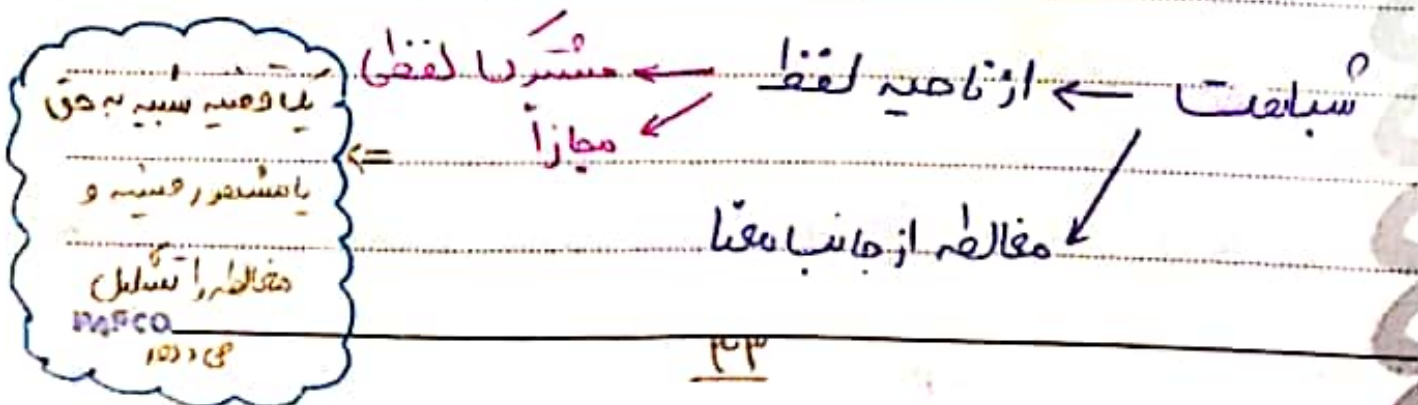 شباهت ← از ناحیه لفظ ← مشترک لفظی
مجازاً
مغالطه از جانب معنا
⇐
یک قضیه شبیه به حق
یا مشهور و
مغالطه را تشکیل
می دهد
PAPCO
۴۳